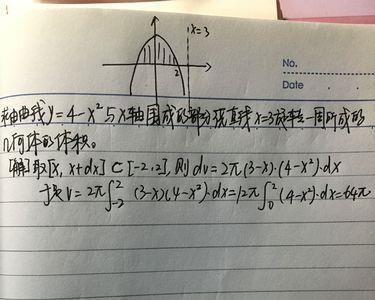 x=3
2
No.
Date
求由曲线y=4-x²与x轴围成的部分绕直线x=3旋转一周所成的
几何体的体积。
[解]取[x, x+dx]⊂[-2,2], 则 dv=2π(3-x)·(4-x²)·dx
故 V=2π∫₋₂² (3-x)(4-x²)·dx=12π∫₀² (4-x²)·dx=64π